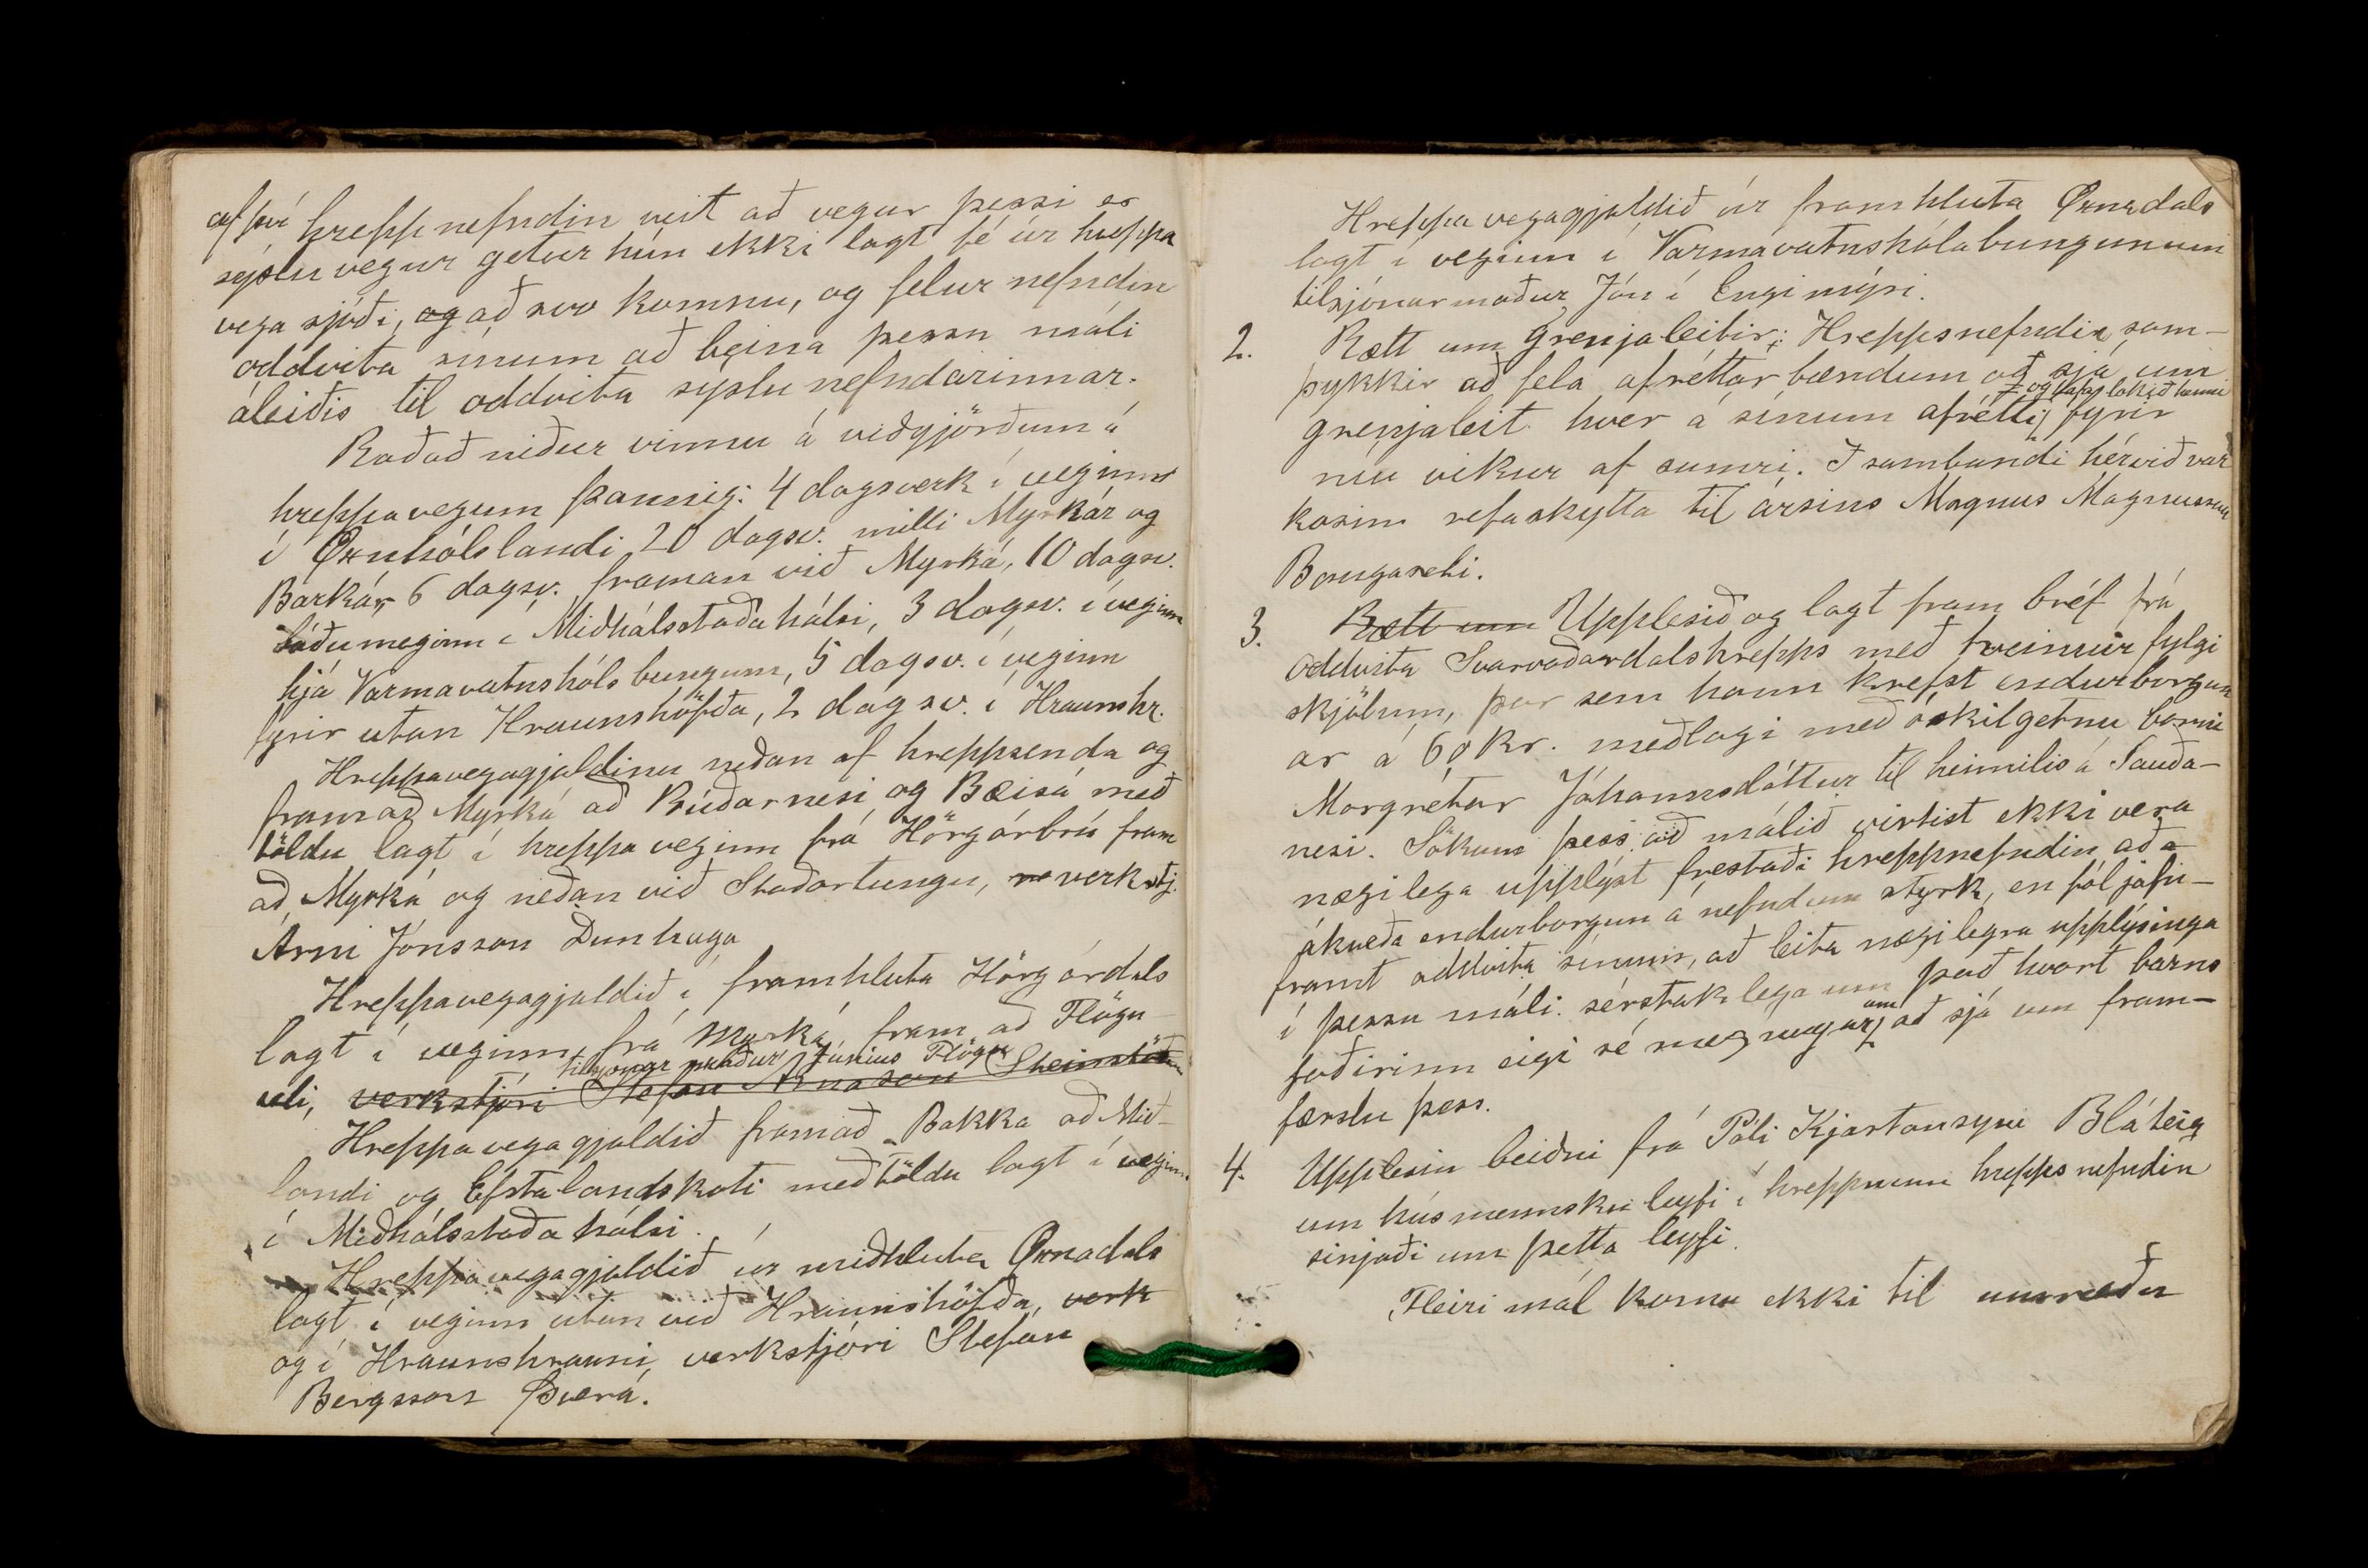 af því hreppnefndin veit að vegur þessi er
sýslu vegur getur hún ekki lagt fé úr hreppa
vega sjóði, og að svo komnu, og felur nefndin
oddvita sínum að beina þessu máli
áleiðis til oddvita sýslu nefndarinnar.
Raðað niður vinnu á viðgjörðum á
hreppavegum þannig: 4 dagsverk í veginn
í Öxnhólslandi 20 dagsv. milli Myrkár og
Barkár, 6 dagsv. framan við Myrká, 10 dagsv.
báðumeginn í Miðhálsstaðahálsi, 3 dagsv. í veginn
hjá Varmavatnshóls bungum, 5 dagsv. í veginn
fyrir utan Hraunshöfða, 2 dagsv. í Hraunshr.
Hreppavegagjaldinu neðan af hreppsenda og
fram að Myrká að Búðarnesi og Bæisá með
töldu lagt í hreppa veginn frá Hörgárbrú fram
að Myrká og neðan við Staðartungu, verkstj.
Árni Jónsson Dunhaga
Hreppavegagjaldið í framhluta Hörgárdals
lagt í veginn frá Myrká fram að Flögu
tilsjónar maður Júníus Flögu
seli, verkstjóri Stefán Árnason Steinstöðum
Hreppavegagjaldið framað Bakka að Mið-
landi og Efstalandskoti meðtöldu lagt í veginn
í Miðhálsstaða hálsi.
Hreppavegagjaldið úr miðhluta Öxnadals
lagt í veginn utan við Hraunshöfða, verk
og í Hraunshrauni, verkstjóri Stefán
Bergsson Þverá.
Hreppavegagjaldið úr framhluta Öxnadals
lagt í veginn í Varmavatnshólabungunum
tilsjónarmaður Jón í Engimýri.
2. Rætt um grenjaleitir; Hreppsnefndin sam-
þykkir að fela afréttar bændum að sjá um
og hafa lokið henni
grenjaleit hver á sínum afrétti fyrir
níu vikur af sumri. Í sambandi hérvið var
kosinn refaskytta til ársins Magnus Magnusson
Baugaseli.
3. Rætt um Upplesið og lagt fram bréf frá
oddvita Svarvaðardalshrepps með tveimur fylgi
skjölum, þar sem hann krefst endurborgun
ar á 60 kr. meðlagi með óskilgetnu barni
Margrétar Jóhannsdóttur til heimilis á Sauða-
nesi. Sökum þess að málið virtist ekki vera
nægilega upplýst frestaði hreppnefndin að
ákveða endurborgun á nefndum styrk, en fól jafn-
framt oddvita sínum, að leita nægilegra upplýsinga
í þessu máli. sérstaklega um það hvort barns
um
faðirinn eigi sé megnugur að sjá um fram-
færslu þess.
4. Upplesin beiðni frá Páli Kjartansyni Bláteig
um húsmennsku leyfi í hreppnum hreppsnefndin
sinjaði um þetta leyfi.
Fleiri mál komu ekki til umræðu